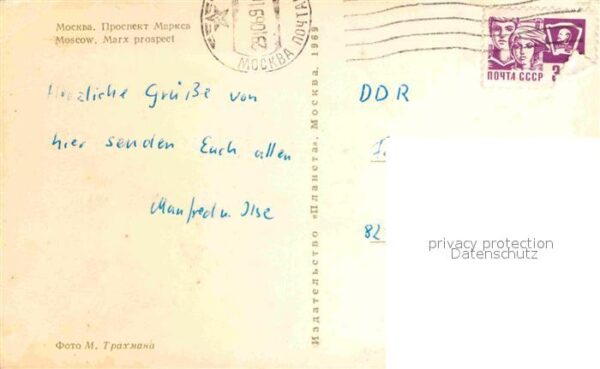 Москва. Проспект Маркса
Moscow, Marx prospect
МОСКВА ПОЧТА
ПОЧТА СССР
Herzliche Grüße von
hier senden Euch allen
Manfred u. Ilse
DDR
82
privacy protection
Datenschutz
Издательство «Планета». Москва. 1969
Фото М. Трахмана